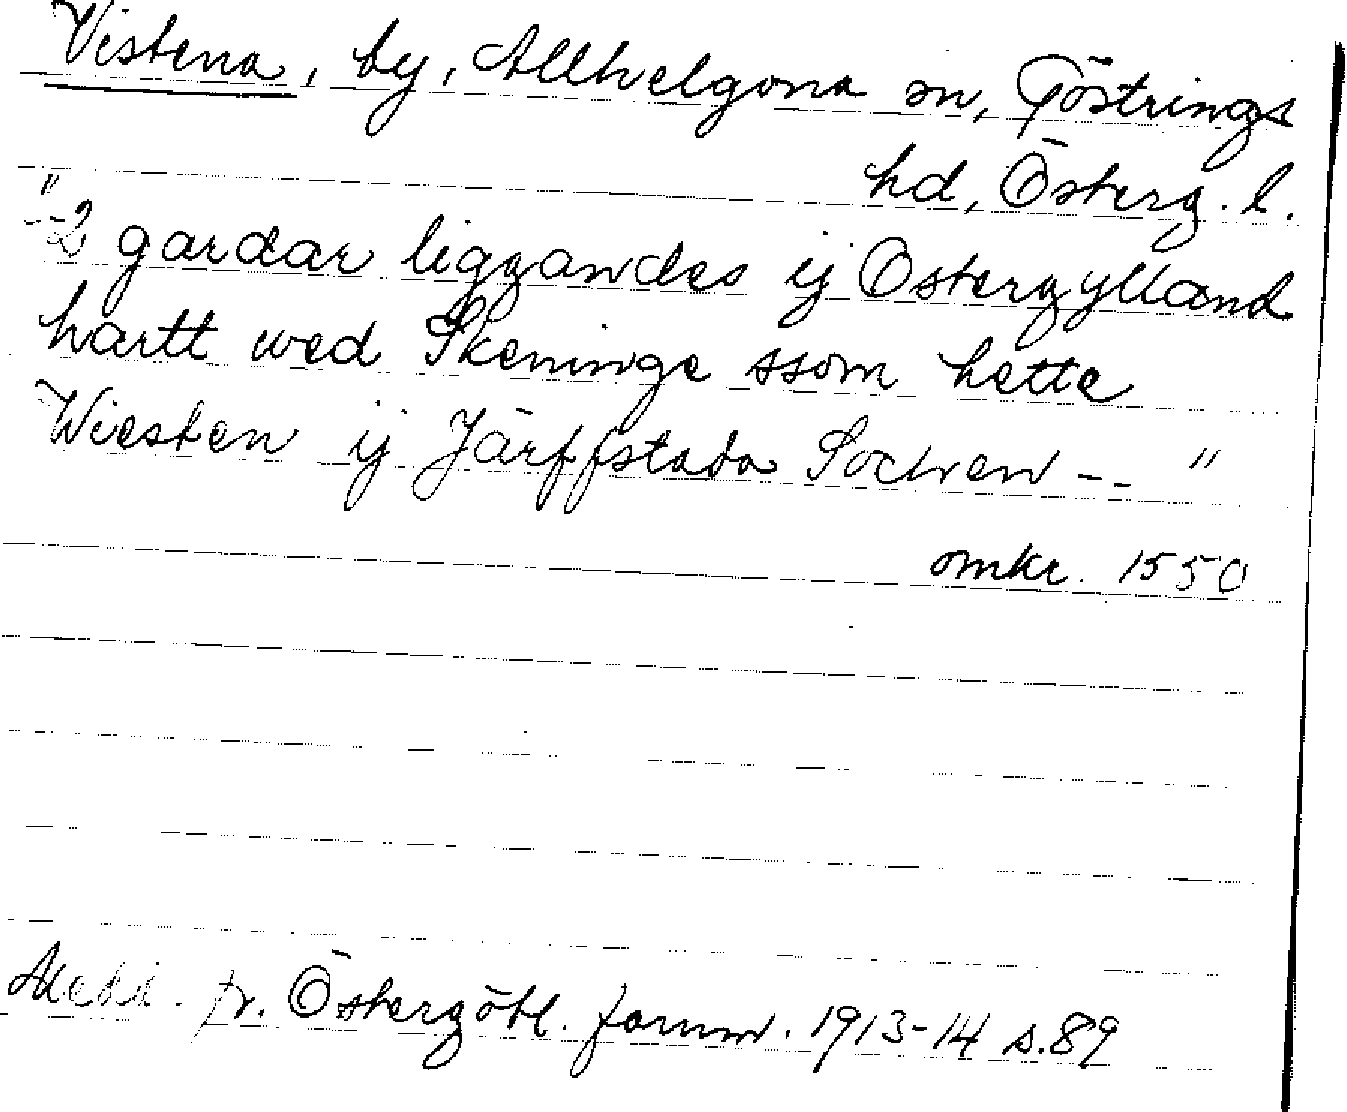 Vistena, by, Allhelgona sn, Göstrings
hd, Österg. l.
"--2 gardar liggandes ij Ostergylland
hartt wed Skeninge ssom hette
Wiesten ij Järffstada Sochen -- "
omkr. 1550
Medd. fr. Östergötl. fornm. 1913-14 s.89